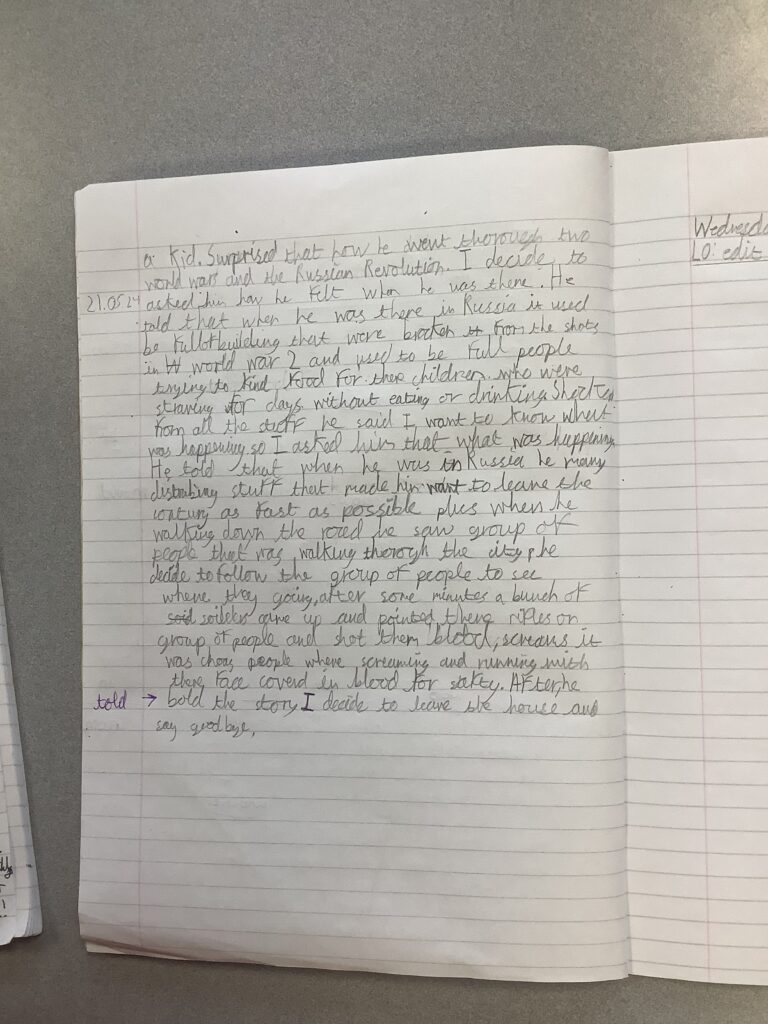 a Kid. Surprised that how he went thorough two
world wars and the Russian Revolution. I decide to
21.05.24 asked him how he felt when he was there. He
told that when he was there in Russia it used
be full of building that were brocken from the shots
in W world war 2 and used to be full people
trying to find food for there children who were
straving for days without eating or drinking. Shocked
from all the stuff he said I want to know what
was happening so I asked him that what was happening.
He told that when he was in Russia he many
distrubing stuff that made him want to leave the
contury as fast as possible plus when he
walking down the roed he saw group of
people that was walking thorogh the city, he
decide to follow the group of people to see
where they going, after some minutes a bunch of
soid soilders came up and pointed there rifles on
group of people and shot them blood, screams it
was choas people where screaming and running with
there face coverd in blood for safty. After, he
told → bold the story I decide to leave the house and
say goodbye,
Wednesda
LO: edit